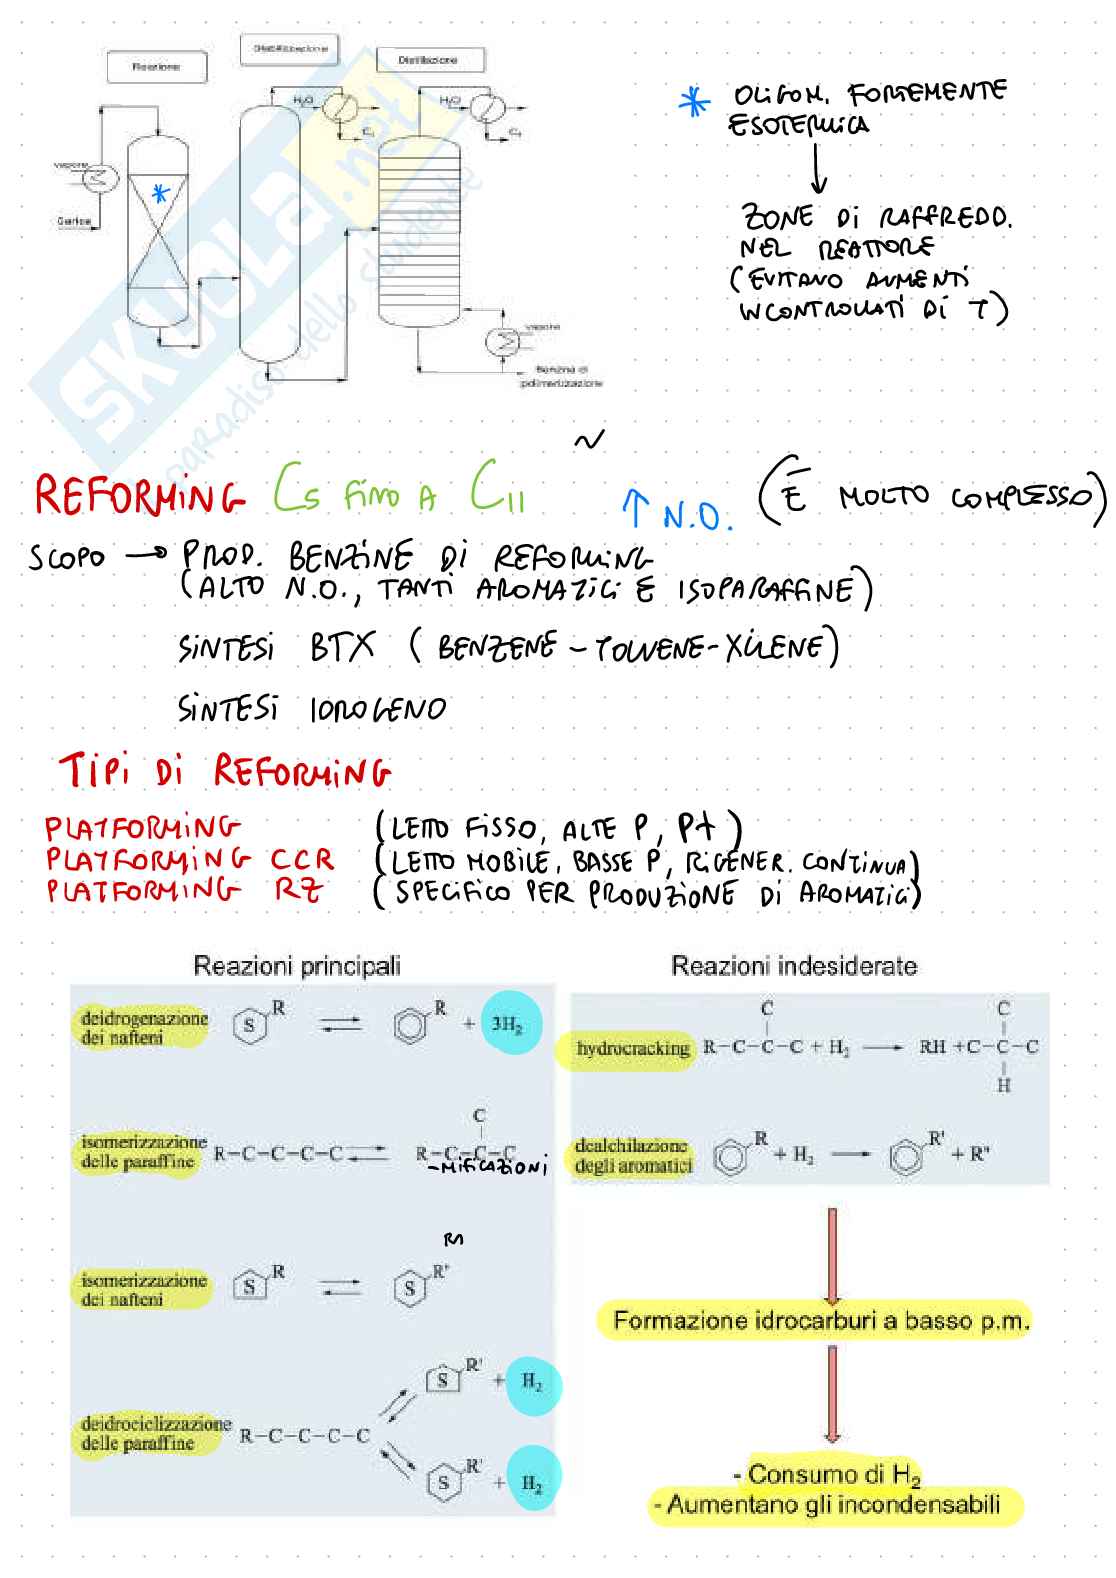 Reazione
Distillazione
H₂O
H₂O
C₄
vapore
Carica
vapore
Benzina di
polimerizzazione
SKUOLA.net
paradiso dello studente
* OLIGOM. FORTEMENTE
ESOTERMICA
ZONE DI RAFFREDD.
NEL REATTORE
(EVITANO AUMENTI
INCONTROLLATI DI T)
~
REFORMING C5 FINO A C11 ↑ N.O. (È MOLTO COMPLESSO)
SCOPO → PROD. BENZINE DI REFORMING
(ALTO N.O., TANTI AROMATICI E ISOPARAFFINE)
SINTESI BTX (BENZENE-TOLUENE-XILENE)
SINTESI IDROGENO
TIPI DI REFORMING
PLATFORMING (LETTO FISSO, ALTE P, Pt)
PLATFORMING CCR (LETTO MOBILE, BASSE P, RIGENER. CONTINUA)
PLATFORMING RZ (SPECIFICO PER PRODUZIONE DI AROMATICI)
Reazioni principali
deidrogenazione
dei nafteni
S R ⇌ R + 3H₂
isomerizzazione
delle paraffine
R-C-C-C-C ⇌ R-C-C-C
C
-MIFICAZIONI
RA
isomerizzazione
dei nafteni
S R ⇌ S R'
deidrociclizzazione
delle paraffine
R-C-C-C-C-C
S R' + H₂
S R' + H₂
Reazioni indesiderate
hydrocracking
C C
R-C-C-C + H₂ → RH +C-C-C
H
dealchilazione
degli aromatici
R + H₂ → R' + R"
Formazione idrocarburi a basso p.m.
- Consumo di H₂
- Aumentano gli incondensabili